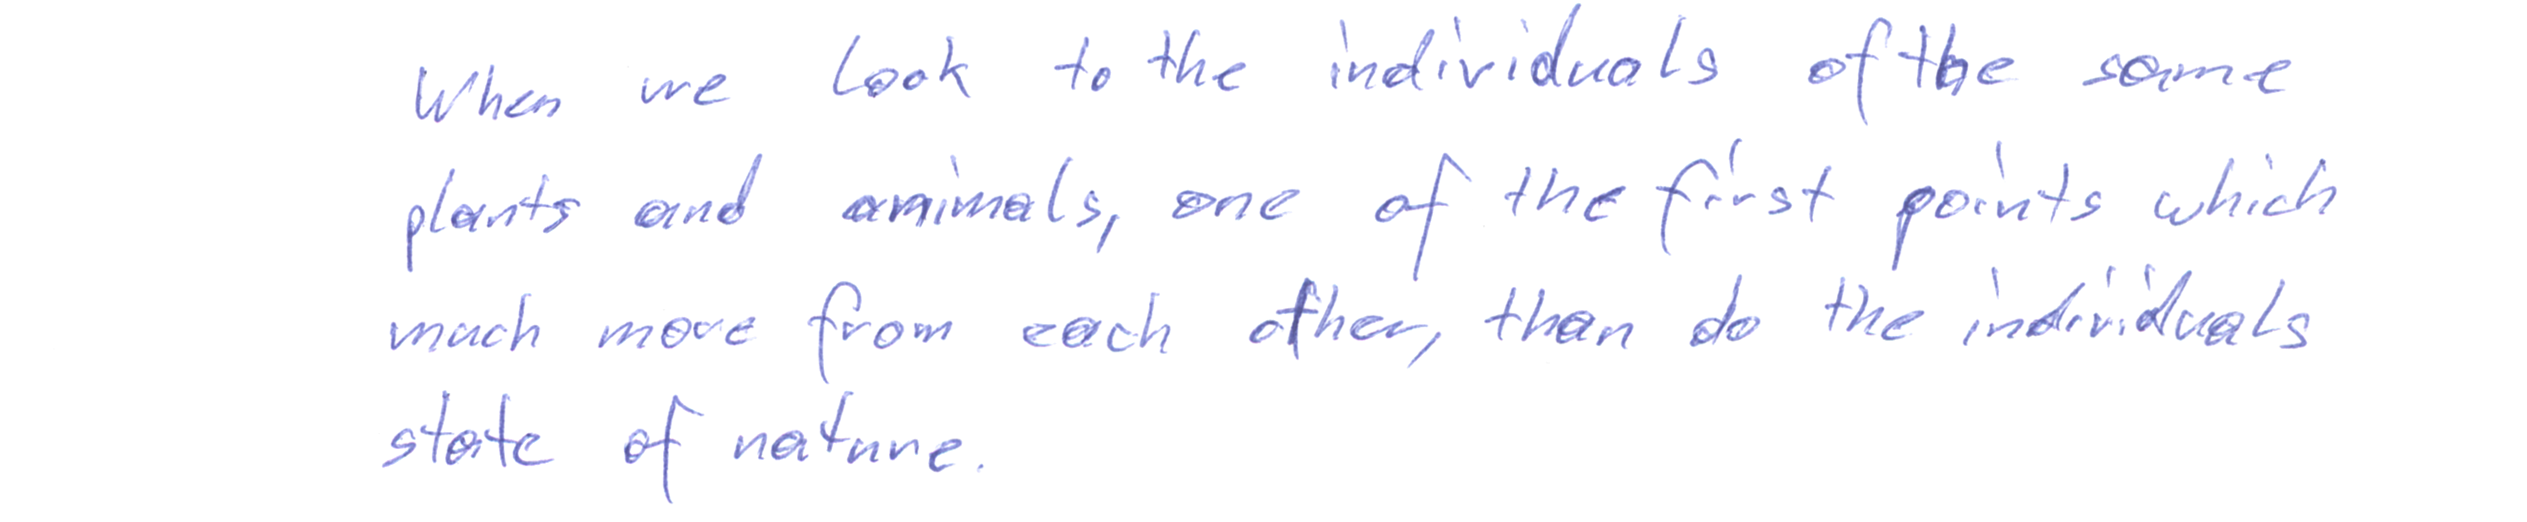 When we look to the individuals of the same
plants and animals, one of the first points which
much more from each other, than do the individuals
state of nature.